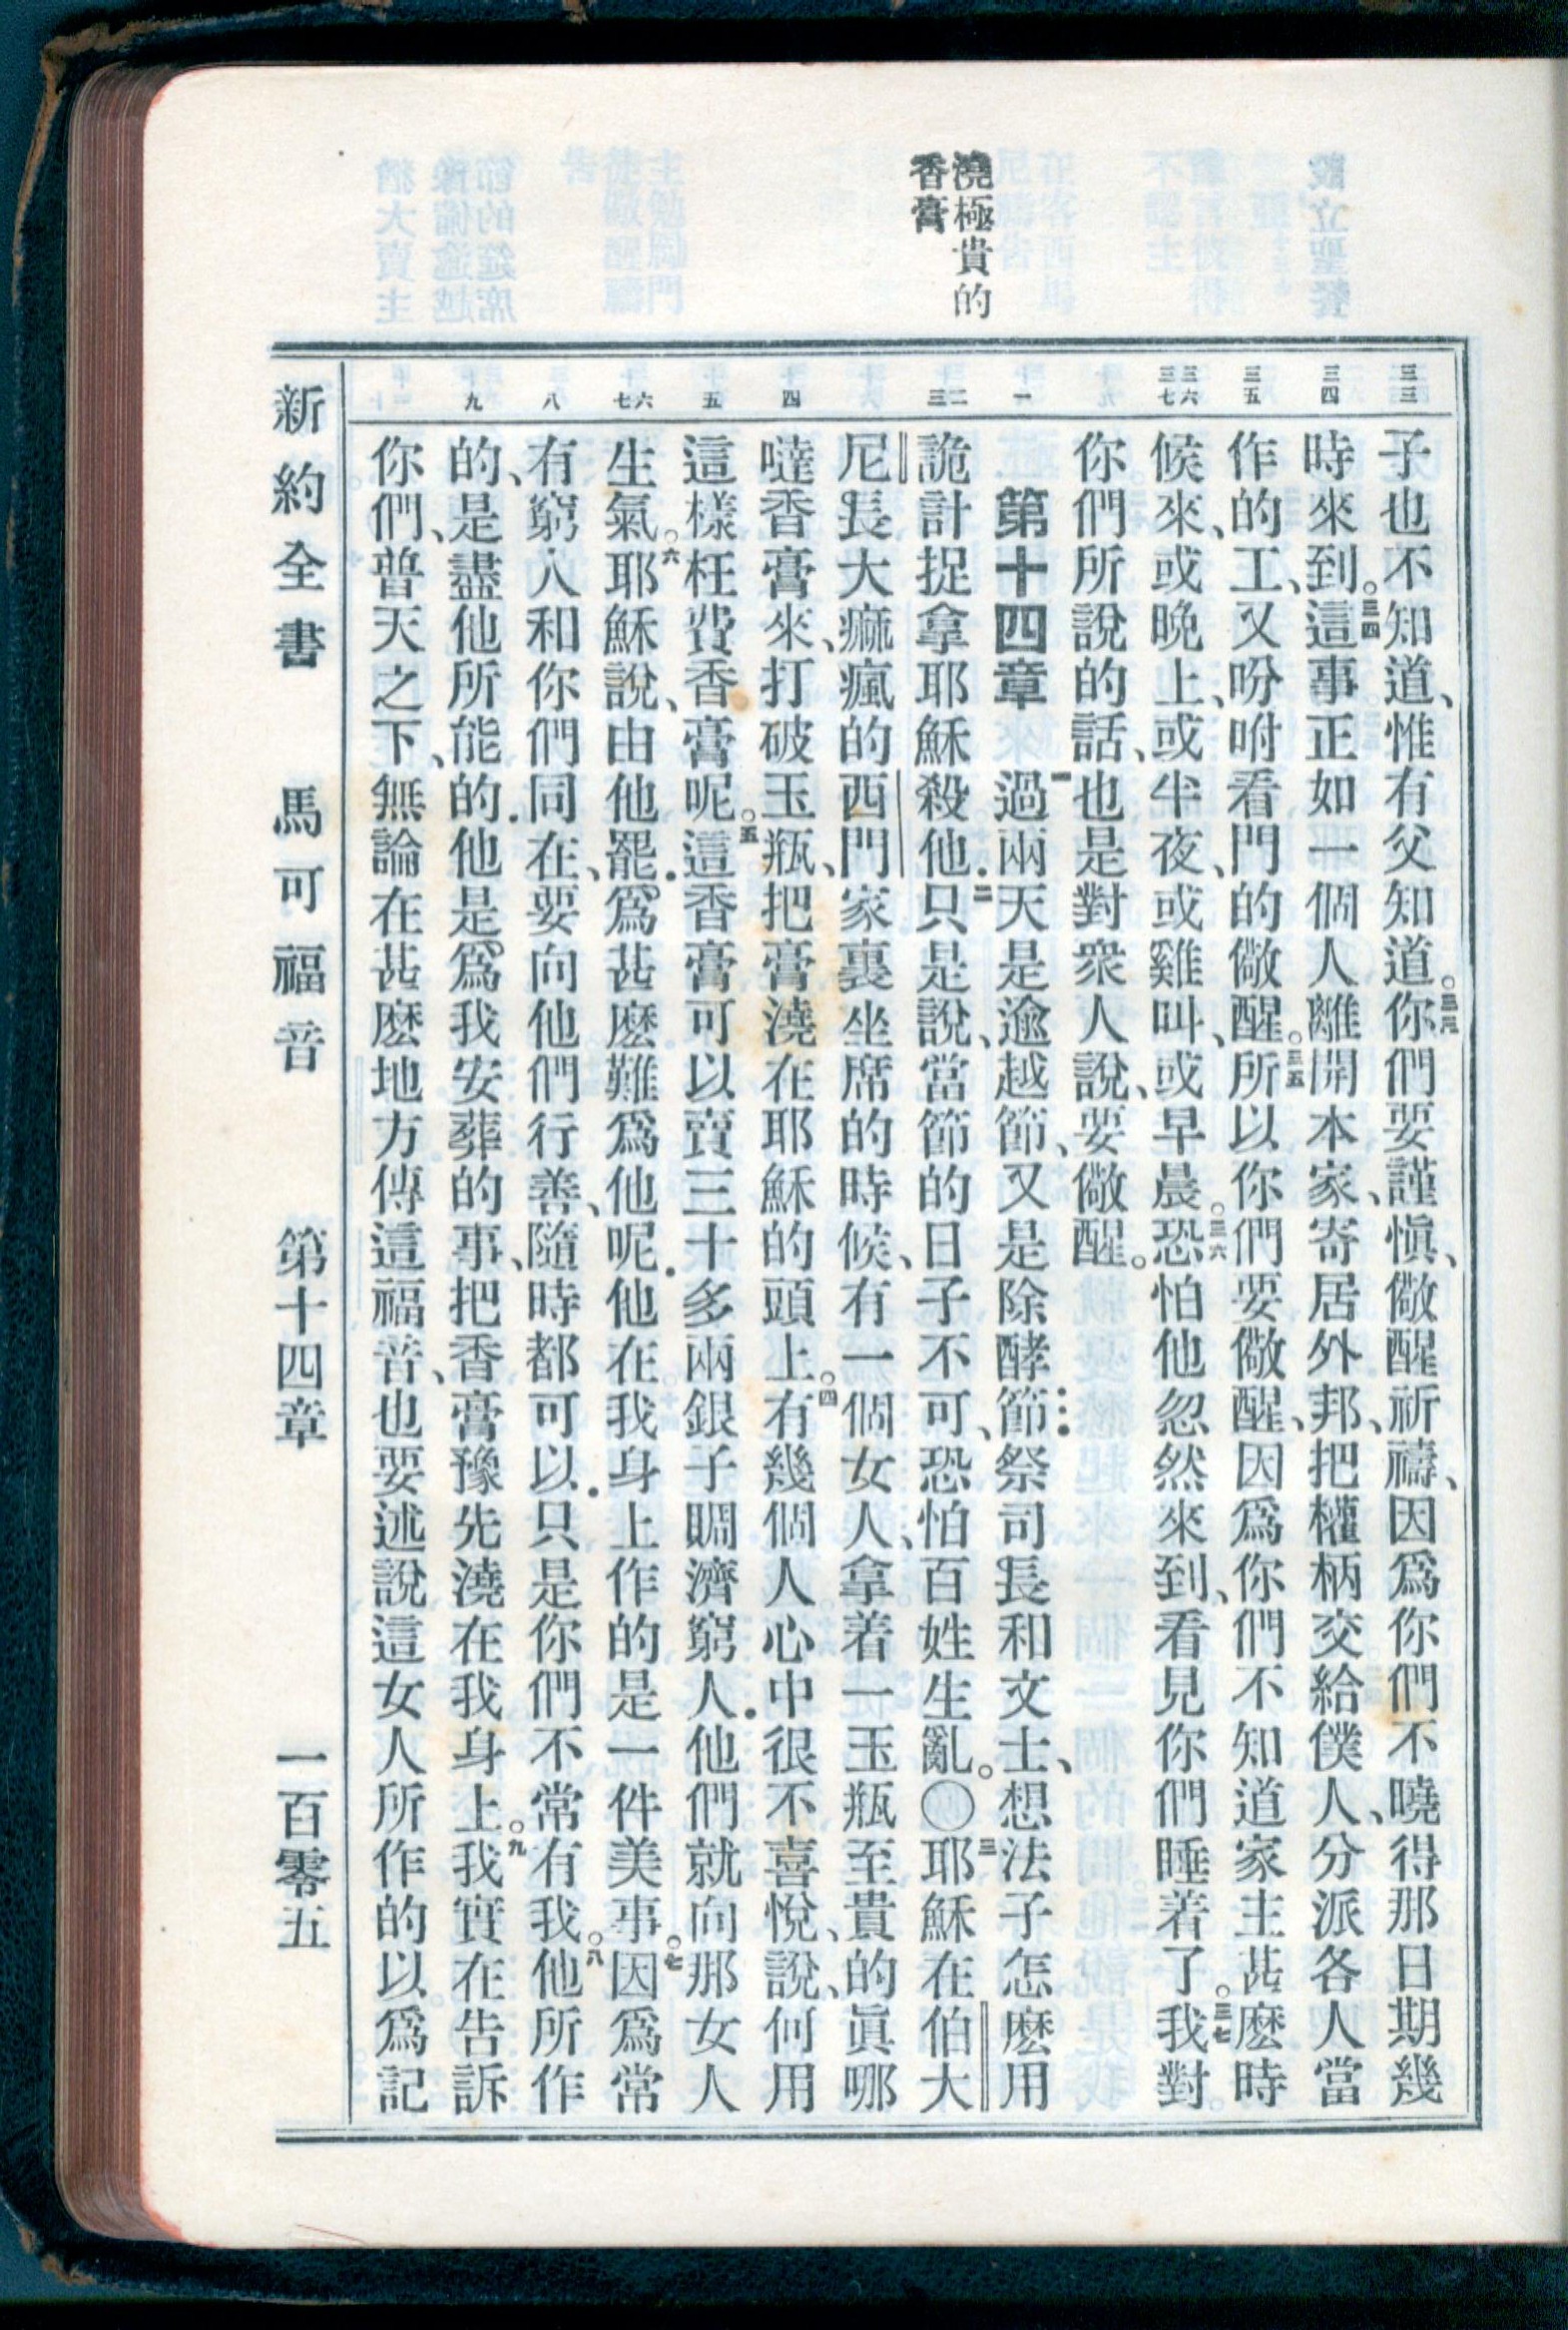 澆極貴的
香膏
三三
三四
三五
三六
三七
一
二
三
四
五
六
七
八
九
子也不知道、惟有父知道。三三你們要謹愼、儆醒祈禱、因爲你們不曉得那日期幾
時來到。三四這事正如一個人離開本家、寄居外邦、把權柄交給僕人、分派各人當
作的工、又吩咐看門的儆醒。三五所以你們要儆醒、因爲你們不知道家主甚麽時
候來、或晚上、或半夜、或雞叫、或早晨。三六恐怕他忽然來到、看見你們睡着了。三七我對
你們所說的話、也是對衆人說、要儆醒。
第十四章 一過兩天是逾越節、又是除酵節祭司長和文士、想法子怎麽用
詭計捉拿耶穌殺他．二只是說、當節的日子不可、恐怕百姓生亂。〇三耶穌在伯大
尼長大痲瘋的西門家裏坐席的時候、有一個女人、拿着一玉瓶至貴的眞哪
噠香膏來、打破玉瓶、把膏澆在耶穌的頭上。四有幾個人心中很不喜悅、說、何用
這樣枉費香膏呢。五這香膏可以賣三十多兩銀子賙濟窮人．他們就向那女人
生氣。六耶穌說、由他罷．爲甚麽難爲他呢．他在我身上作的是一件美事。七因爲常
有窮人和你們同在、要向他們行善、隨時都可以．只是你們不常有我。八他所作
的、是盡他所能的．他是爲我安葬的事、把香膏豫先澆在我身上。九我實在告訴
你們、普天之下、無論在甚麽地方傳這福音、也要述說這女人所作的以爲記
新約全書 馬可福音 第十四章 一百零五